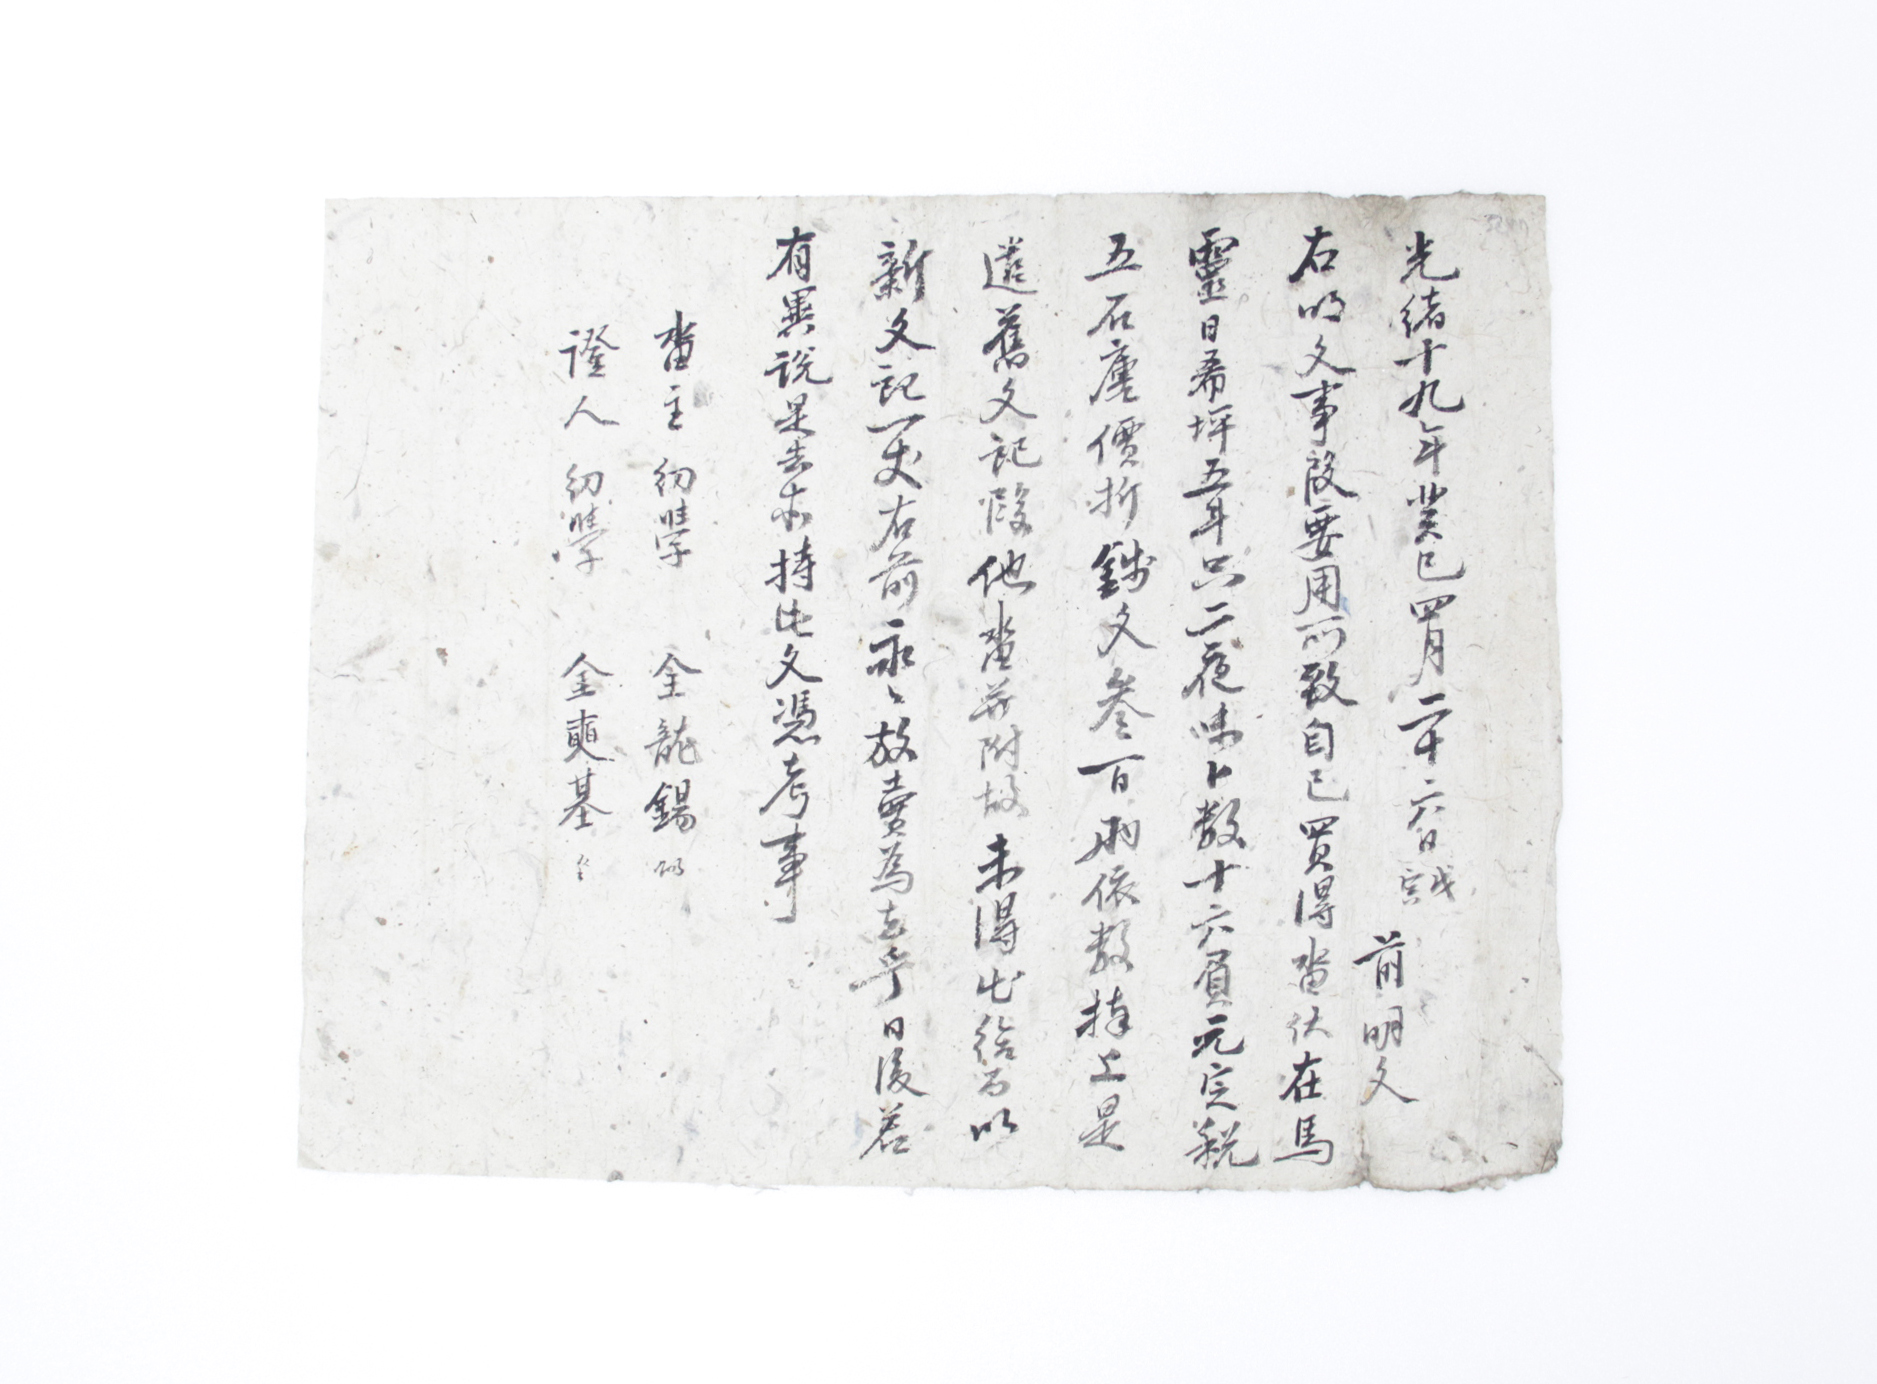 光緒十九年癸巳四月二十六日 前明文
右明文事段要用所致自己買得畓伏在馬
靈日希坪五斗只二夜味卜數十六負元定稅
五石庫價折錢文叁百兩依數捧上是
遣舊文記段他畓幷附故未得出給而以
新文記一丈右前永〻放賣為去乎日後若
有異說是去等持此文憑考事
畓主 幼學 金龍錫
證人 幼學 金奭基